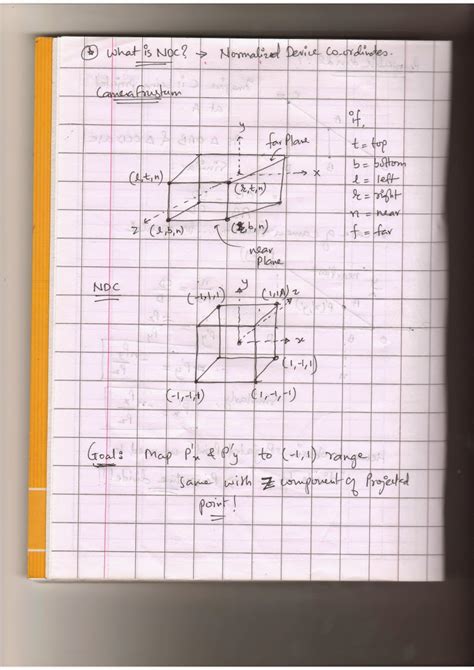 ③ What is NDC? → Normalized Device Co-ordinates.
Camera frustum
y
far plane
x
(l,t,n)
(r,t,n)
z
(l,b,n)
(r,b,n)
near
plane
if,
t = top
b = bottom
l = left
r = right
n = near
f = far
NDC
y
(-1,1,1)
(1,1,1)
z
x
(1,-1,1)
(-1,-1,-1)
(1,-1,-1)
Goal: Map P'x & P'y to (-1,1) range
same with Z component of Projected
point!